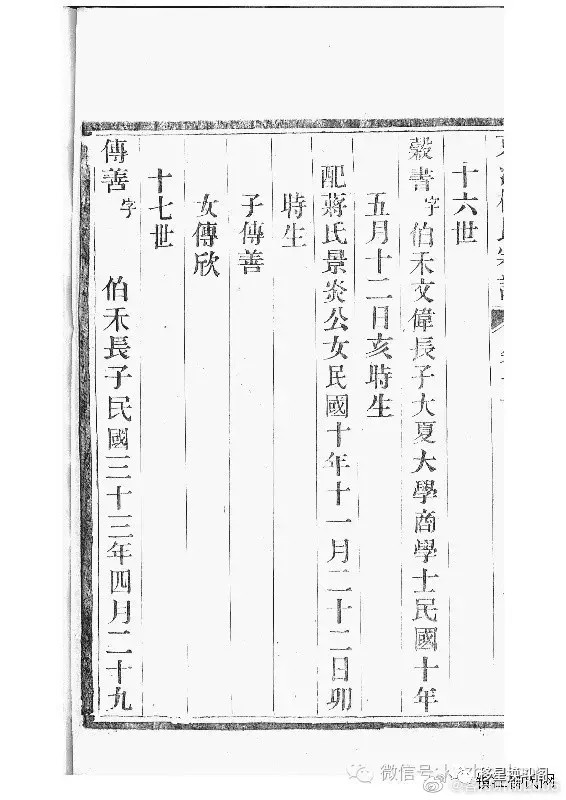 十六世
穀書字伯禾文偉長子大夏大學商學士民國十年
五月十二日亥時生
配蔣氏景炎公女民國十年十一月二十二日卯
時生
子傳善
女傳欣
十七世
傳善字 伯禾長子民國三十三年四月二十九
微信号